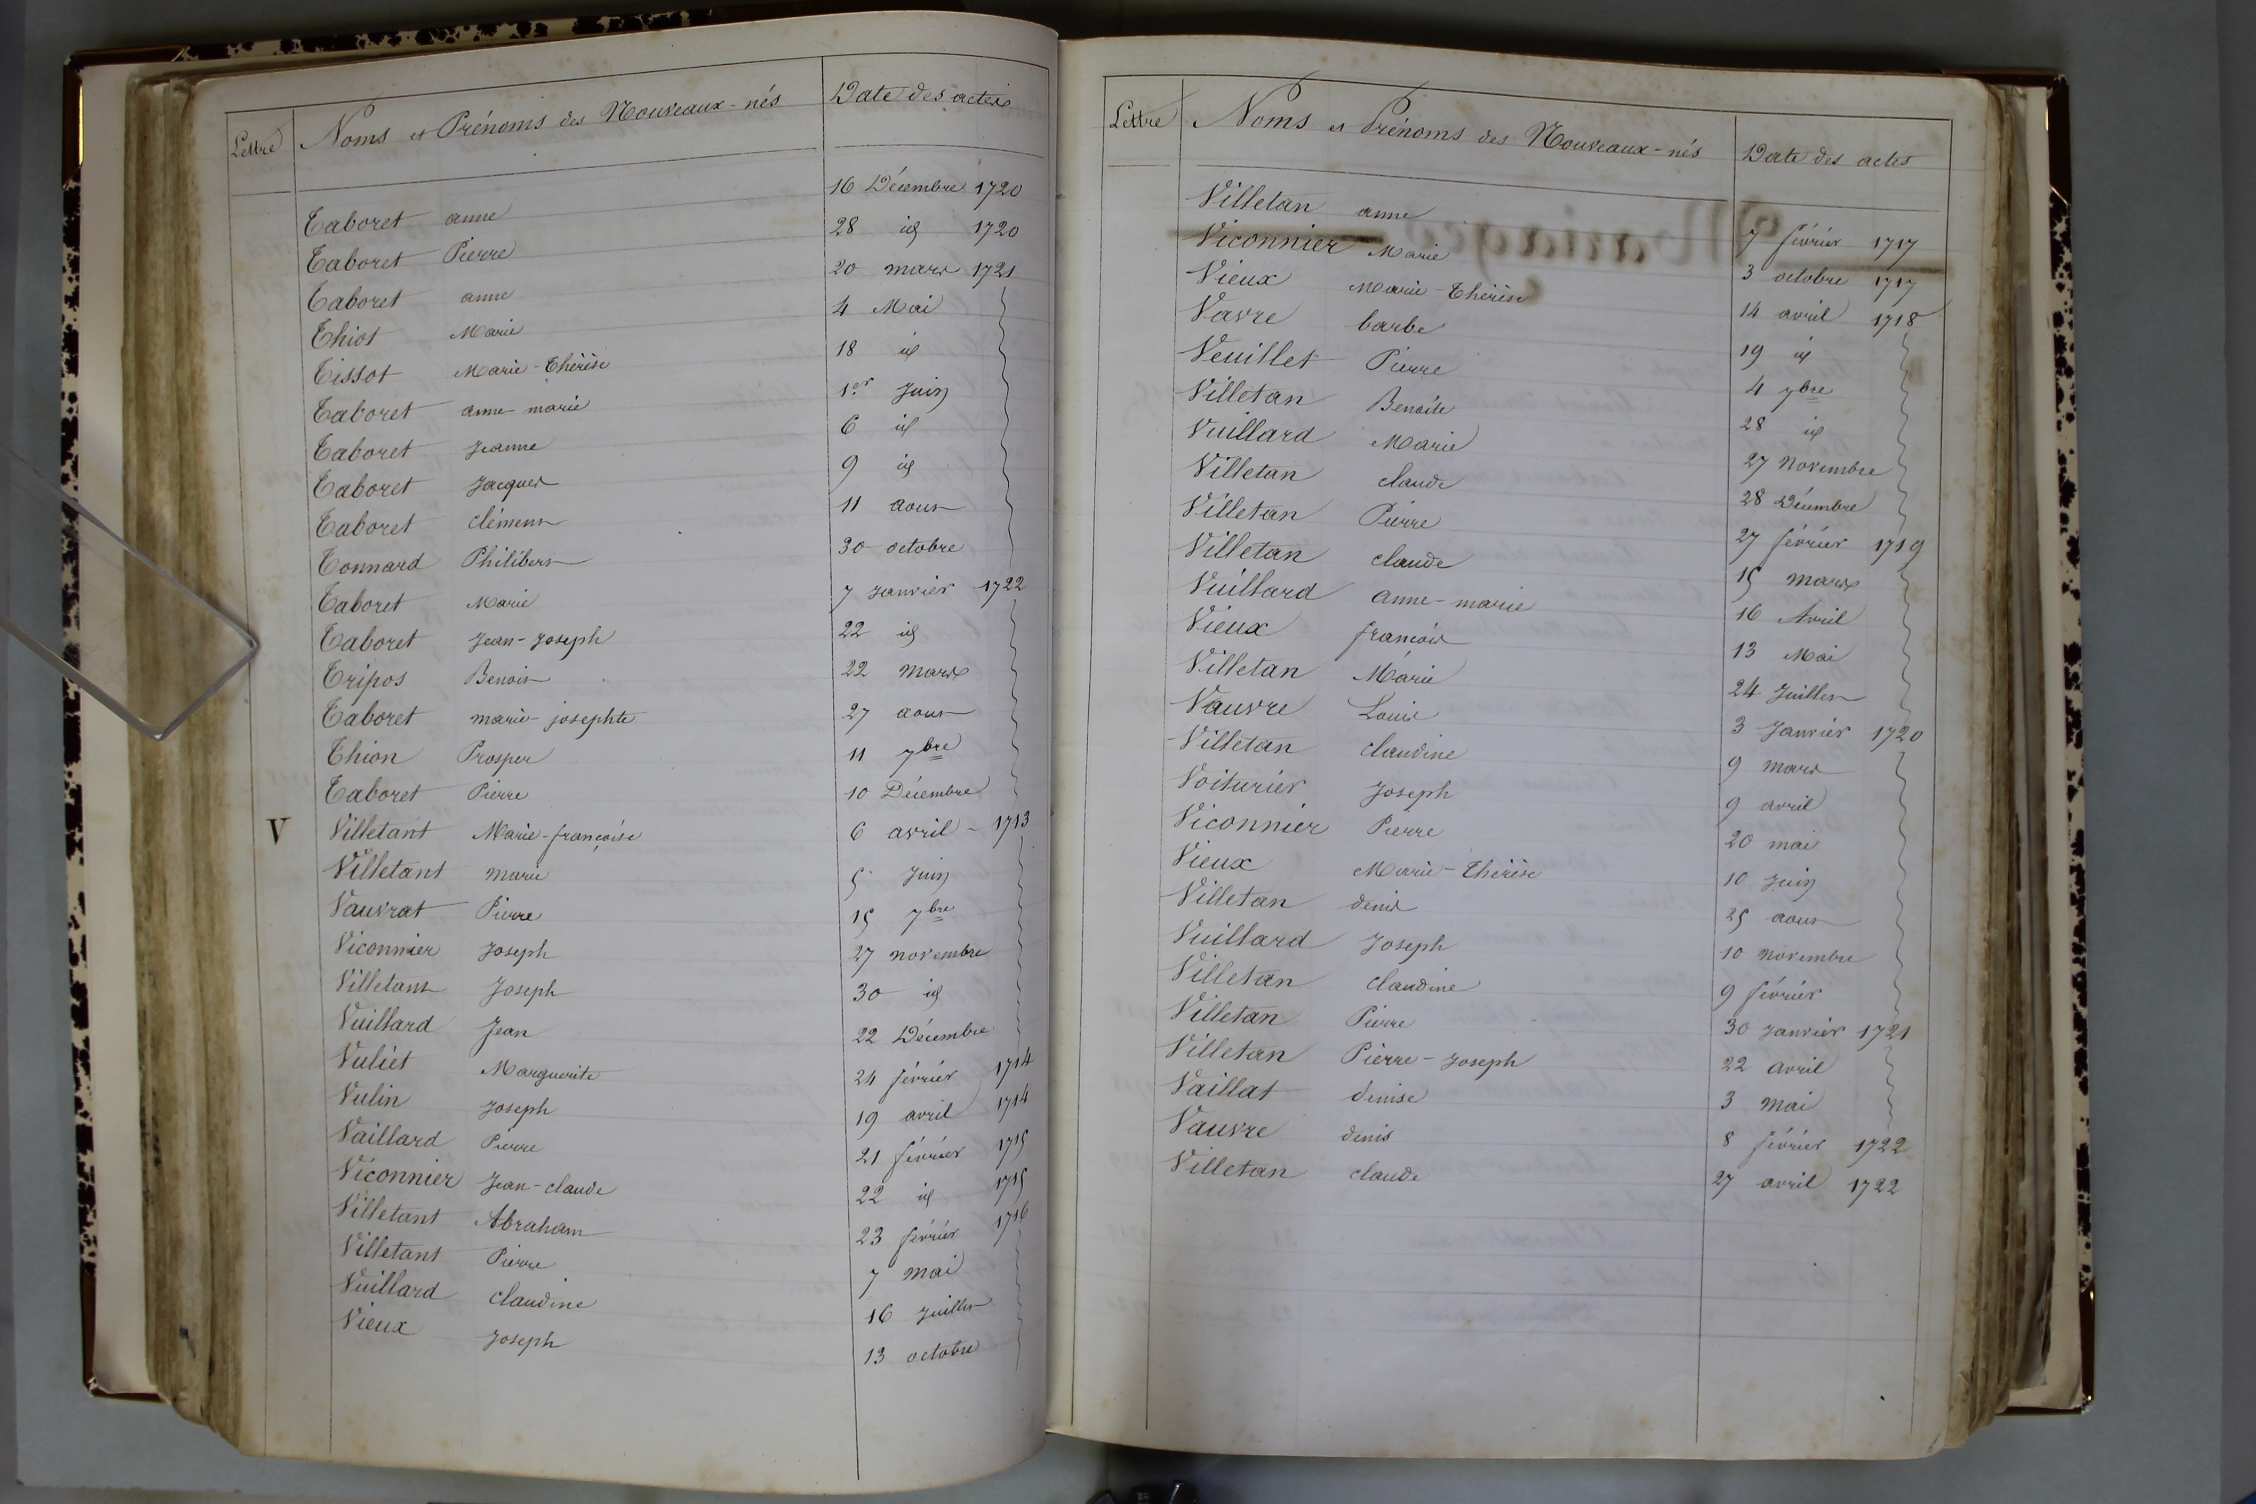 Lettre Noms et Prénoms des Nouveaux-nés Date des actes
Taboret anne 16 Décembre 1720
Taboret Pierre 28 id 1720
Taboret anne 20 mars 1721
Thiot Marie 4 Mai
Tissot Marie-Thérèse 18 id
Taboret anne-marie 1er Juin
Taboret Jeanne 6 id
Taboret Jacques 9 id
Taboret clément 11 aout
Tonnard Philibert 30 octobre
Taboret Marie 7 Janvier 1722
Taboret Jean-Joseph 22 id
Tripos Benoit 22 mars
Taboret marie-josephte 27 aout
Thion Prosper 11 7bre
Taboret Pierre 10 Décembre
V Villetant Marie-françoise 6 avril - 1713
Villetant marie 5 Juin
Vauvrat Pierre 15 7bre
Viconnier Joseph 27 novembre
Villetant Joseph 30 id
Vuillard Jean 22 Décembre
Vuliet Marguerite 24 février 1714
Vulin Joseph 19 avril 1714
Vaillard Pierre 21 février 1715
Viconnier Jean-claude 22 id 1715
Villetant Abraham 23 février 1716
Villetant Pierre 7 mai
Vuillard claudine 16 Juillet
Vieux Joseph 13 octobre
Lettre Noms et Prénoms des Nouveaux-nés Date des actes
Villetan anne 7 février 1717
Viconnier Marie 3 octobre 1717
Vieux Marie-Thérèse 14 avril 1718
Vavre barbe 19 id
Veuillet Pierre 4 7bre
Villetan Benoite 28 id
Vuillard Marie 27 Novembre
Villetan claude 28 Décembre
Villetan Pierre 27 février 1719
Villetan claude 15 mars
Vuillard anne-marie 16 Avril
Vieux francois 13 Mai
Villetan Marie 24 Juillet
Vauvre Louis 3 Janvier 1720
Villetan claudine 9 mars
Voiturier Joseph 9 avril
Viconnier Pierre 20 mai
Vieux Marie-Thérèse 10 Juin
Villetan denis 25 aout
Vuillard Joseph 10 Novembre
Villetan claudine 9 février
Villetan Pierre 30 Janvier 1721
Villetan Pierre-Joseph 22 avril
Vaillat denise 3 mai
Vauvre denis 8 février 1722
Villetan claude 27 avril 1722